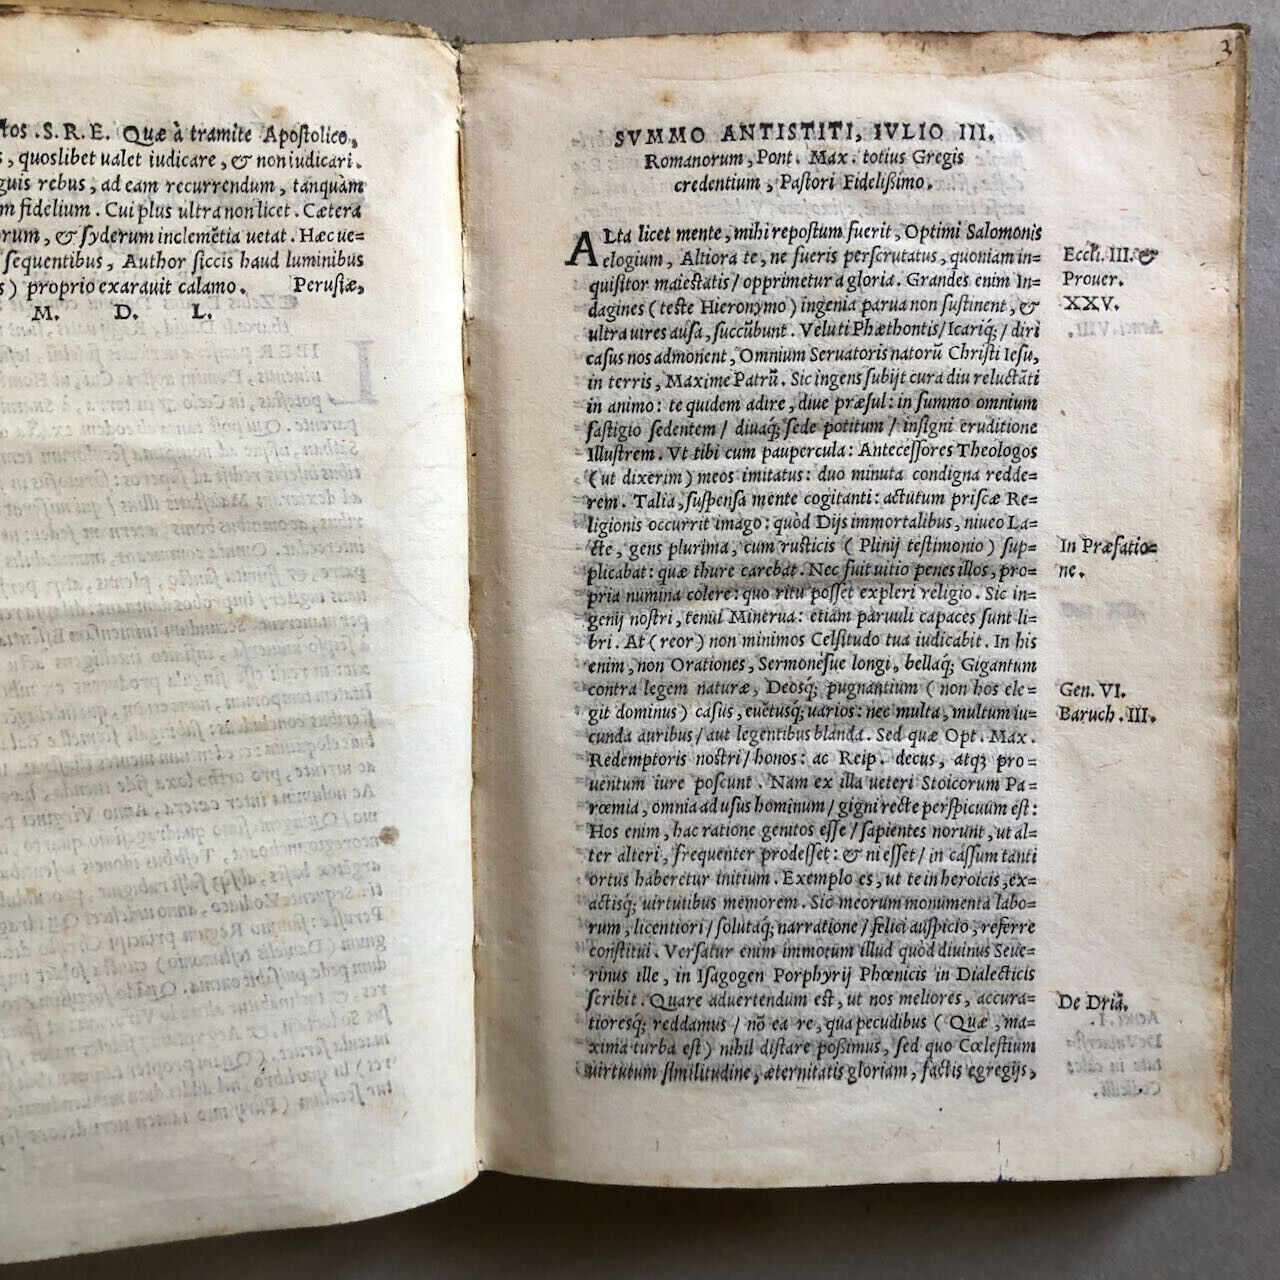 tos .S.R.E. Quæ à tramite Apostolico,
, quoslibet ualet iudicare, & non iudicari.
guis rebus, ad eam recurrendum, tanquàm
m fidelium. Cui plus ultra non licet. Cætera
orum, & syderum inclemẽtia uetat. Hæc ue=
sequentibus, Author siccis haud luminibus
s) proprio exarauit calamo. Perusiæ,
M. D. L.
3
SVMMO ANTISTITI, IVLIO III.
Romanorum, Pont. Max. totius Gregis
credentium, Pastori Fidelissimo.
ALta licet mente, mihi repostum fuerit, Optimi Salomonis
elogium, Altiora te, ne fueris perscrutatus, quoniam in=
quisitor maiestatis / opprimetur a gloria. Grandes enim In=
dagines (teste Hieronymo) ingenia parua non sustinent, &
ultra uires ausa, succũbunt. Veluti Phæthontis/Icariq; / diri
casus nos admonent, Omnium Seruatoris natorũ Christi Iesu,
in terris, Maxime Patrũ. Sic ingens subijt cura diu reluctãti
in animo: te quidem adire, diue præsul: in summo omnium
fastigio sedentem / diuaq; sede potitum / insigni eruditione
Illustrem. Vt tibi cum paupercula: Antecessores Theologos
(ut dixerim) meos imitatus: duo minuta condigna redde=
rem. Talia, suspensa mente cogitanti: actutum priscæ Re=
ligionis occurrit imago: quòd Dijs immortalibus, niueo La=
cte, gens plurima, cum rusticis (Plinij testimonio) sup=
plicabat: quæ thure carebat. Nec fuit uitio penes illos, pro=
pria numina colere: quo ritu posset expleri religio. Sic in=
genij nostri, tenui Minerua: etiam paruuli capaces sunt li=
bri. At (reor) non minimos Celsitudo tua iudicabit. In his
enim, non Orationes, Sermonesue longi, bellaq; Gigantum
contra legem naturæ, Deosq; pugnantium (non hos ele=
git dominus) casus, euẽtusq; uarios: nec multa, multum iu=
cunda auribus / aut legentibus blanda. Sed quæ Opt. Max.
Redemptoris nostri / honos: ac Reip. decus, atq; pro=
uentum iure poscunt. Nam ex illa ueteri Stoicorum Pa=
rœmia, omnia ad usus hominum / gigni recte perspicuum est:
Hos enim, hac ratione genitos esse / sapientes norunt, ut al=
ter alteri, frequenter prodesset: & ni esset / in cassum tanti
ortus haberetur initium. Exemplo es, ut te in heroicis, ex=
actisq; uirtutibus memorem. Sic meorum monumenta labo=
rum, licentiori / solutaq; narratione / felici auspicio, referre
constitui. Versatur enim immotum illud quòd diuinus Seue=
rinus ille, in Isagogen Porphyrij Phœnicis in Dialecticis
scribit. Quare aduertendum est, ut nos meliores, accura=
tioresq; reddamus / nõ ea re, qua pecudibus (Quæ, ma=
xima turba est) nihil distare possimus, sed quo Cœlestium
uirtutum similitudine, æternitatis gloriam, factis egregijs,
Eccli. III. &
Prouer.
XXV.
In Præfatio=
ne.
Gen. VI.
Baruch. III.